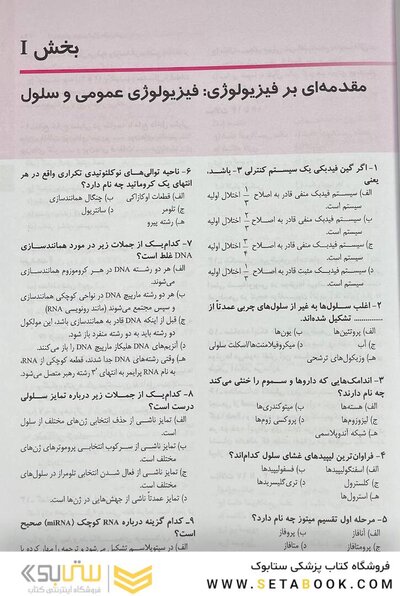 بخش I
مقدمه‌ای بر فیزیولوژی: فیزیولوژی عمومی و سلول
۱- اگر گین فیدبکی یک سیستم کنترلی ۳- باشد، یعنی
الف) سیستم فیدبک منفی قادر به اصلاح ۱/۳ اختلال اولیه
سیستم است.
ب) سیستم فیدبک منفی قادر به اصلاح ۲/۳ اختلال اولیه
سیستم است.
ج) سیستم فیدبک منفی قادر به اصلاح ۳/۴ اختلال اولیه
سیستم است.
د) سیستم فیدبک مثبت قادر به اصلاح ۱/۳ اختلال اولیه
سیستم است.
۲- اغلب سلول‌ها به غیر از سلول‌های چربی عمدتاً از
............... تشکیل شده‌اند.
الف) پروتئین‌ها ب) یون‌ها
ج) آب د) میکروفیلامنت‌ها/اسکلت سلولی
هـ) وزیکول‌های ترشحی
۳- اندامک‌هایی که داروها و سموم را خنثی می‌کند
چه نام دارند؟
الف) هسته‌ها ب) میتوکندری‌ها
ج) لیزوزوم‌ها د) پروکسی زوم‌ها
هـ) شبکه آندوپلاسمی
۴- فراوان‌ترین لیپیدهای غشای سلول کدام‌اند؟
الف) اسفنگولیپیدها ب) فسفولیپیدها
ج) کلسترول د) تری‌گلیسریدها
هـ) استرول‌ها
۵- مرحله اول تقسیم میتوز چه نام دارد؟
الف) آنافاز ب) پروفاز
ج) پرومتافاز د) متافاز
۶- ناحیه توالی‌های نوکلئوتیدی تکراری واقع در هر
انتهای یک کروماتید چه نام دارد؟
الف) قطعات اوکازاکی ب) چنگال همانندسازی
ج) تلومر د) سانتریول
هـ) رشته پیرو
۷- کدام‌یک از جملات زیر در مورد همانندسازی
DNA غلط است؟
الف) هر دو رشته DNA در هر کروموزوم همانندسازی
می‌شوند.
ب) هر دو رشته مارپیچ DNA در نواحی کوچکی همانندسازی
و سپس مجتمع می‌شوند (مانند رونویسی RNA)
ج) قبل از اینکه DNA قادر به همانندسازی باشد، این مولکول
دو رشته باید به دو رشته منفرد باز شود.
د) آنزیم‌های DNA هلیکاز مارپیچ DNA را باز می‌کنند.
هـ) وقتی رشته‌های DNA جدا شدند، قطعه کوچکی از RNA،
به نام RNA پرایمر به انتهای ۳' رشته رهبر متصل می‌شود.
۸- کدام‌یک از جملات زیر درباره تمایز سلولی
درست است؟
الف) تمایز ناشی از حذف انتخابی ژن‌های مختلف از سلول
است.
ب) تمایز ناشی از سرکوب انتخابی پروموترهای ژن‌های
مختلف است.
ج) تمایز ناشی از فعال شدن انتخابی تلومراز در سلول‌های
مختلف است.
د) تمایز عمدتاً ناشی از جهش‌هایی در ژن‌ها است.
۹- کدام گزینه درباره RNA کوچک (miRNA) صحیح
است؟
الف) در سیتوپلاسم تشکیل می‌شود و ترجمه را مهار کرده یا
ستابوک
فروشگاه اینترنتی کتاب
فروشگاه کتاب پزشکی ستابوک
WWW.SETABOOK.COM